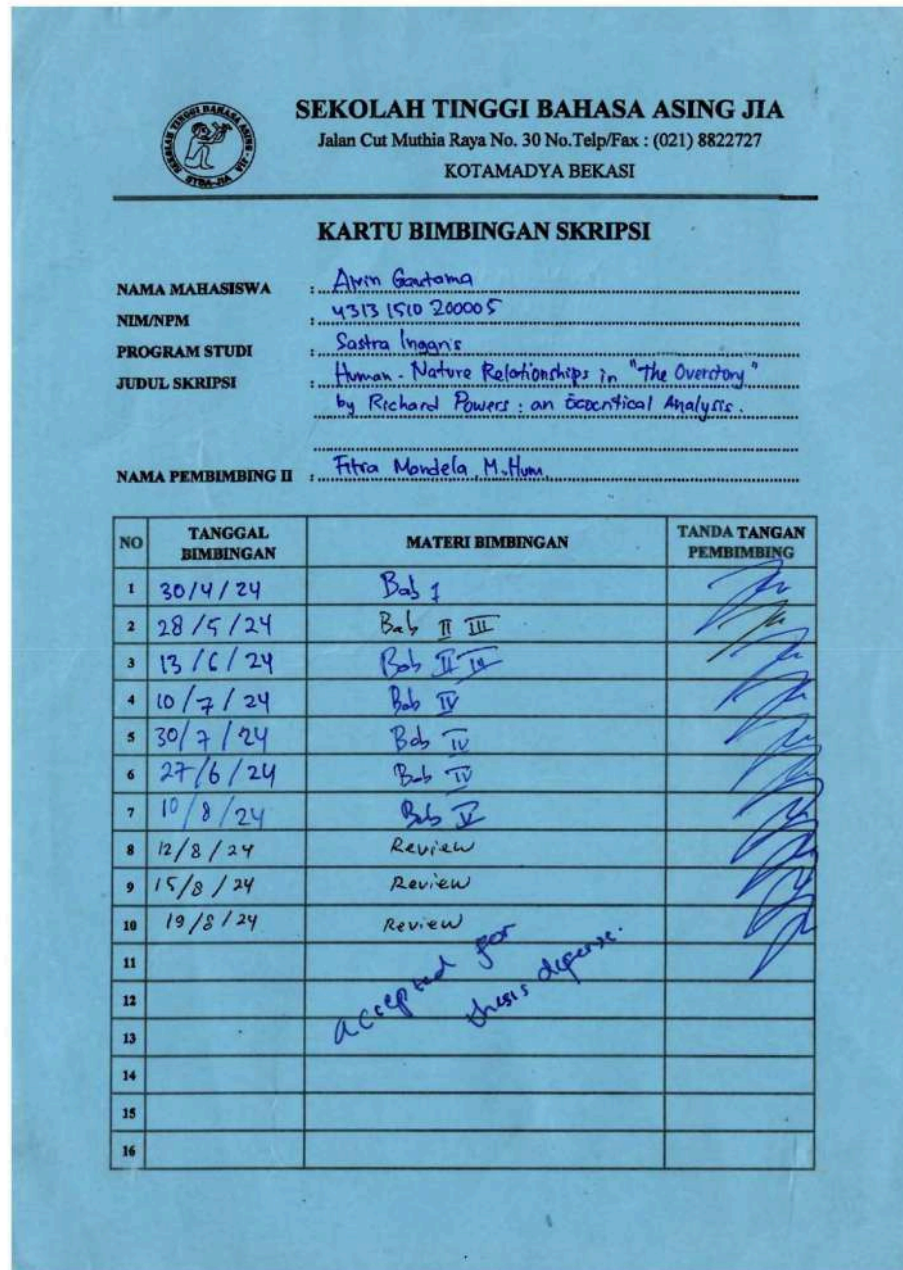 SEKOLAH TINGGI BAHASA ASING JIA
Jalan Cut Muthia Raya No. 30 No.Telp/Fax : (021) 8822727
KOTAMADYA BEKASI
SEKOLAH TINGGI BAHASA ASING - JIA
STBA-JIA
KARTU BIMBINGAN SKRIPSI
NAMA MAHASISWA : Arvin Gautama
NIM/NPM : 43131510 200005
PROGRAM STUDI : Sastra Inggris
JUDUL SKRIPSI : Human - Nature Relationships in "The Overstory"
by Richard Powers : an Ecocritical Analysis.
NAMA PEMBIMBING II : Fitra Mandela, M.Hum.
NO TANGGAL BIMBINGAN MATERI BIMBINGAN TANDA TANGAN PEMBIMBING
1 30/4/24 Bab 1
2 28/5/24 Bab II III
3 13/6/24 Bab II
4 10/7/24 Bab IV
5 30/7/24 Bab IV
6 27/6/24 Bab IV
7 10/8/24 Bab V
8 12/8/24 Review
9 15/8/24 Review
10 19/8/24 Review
11
12
13
14
15
16
accepted for
thesis defense.